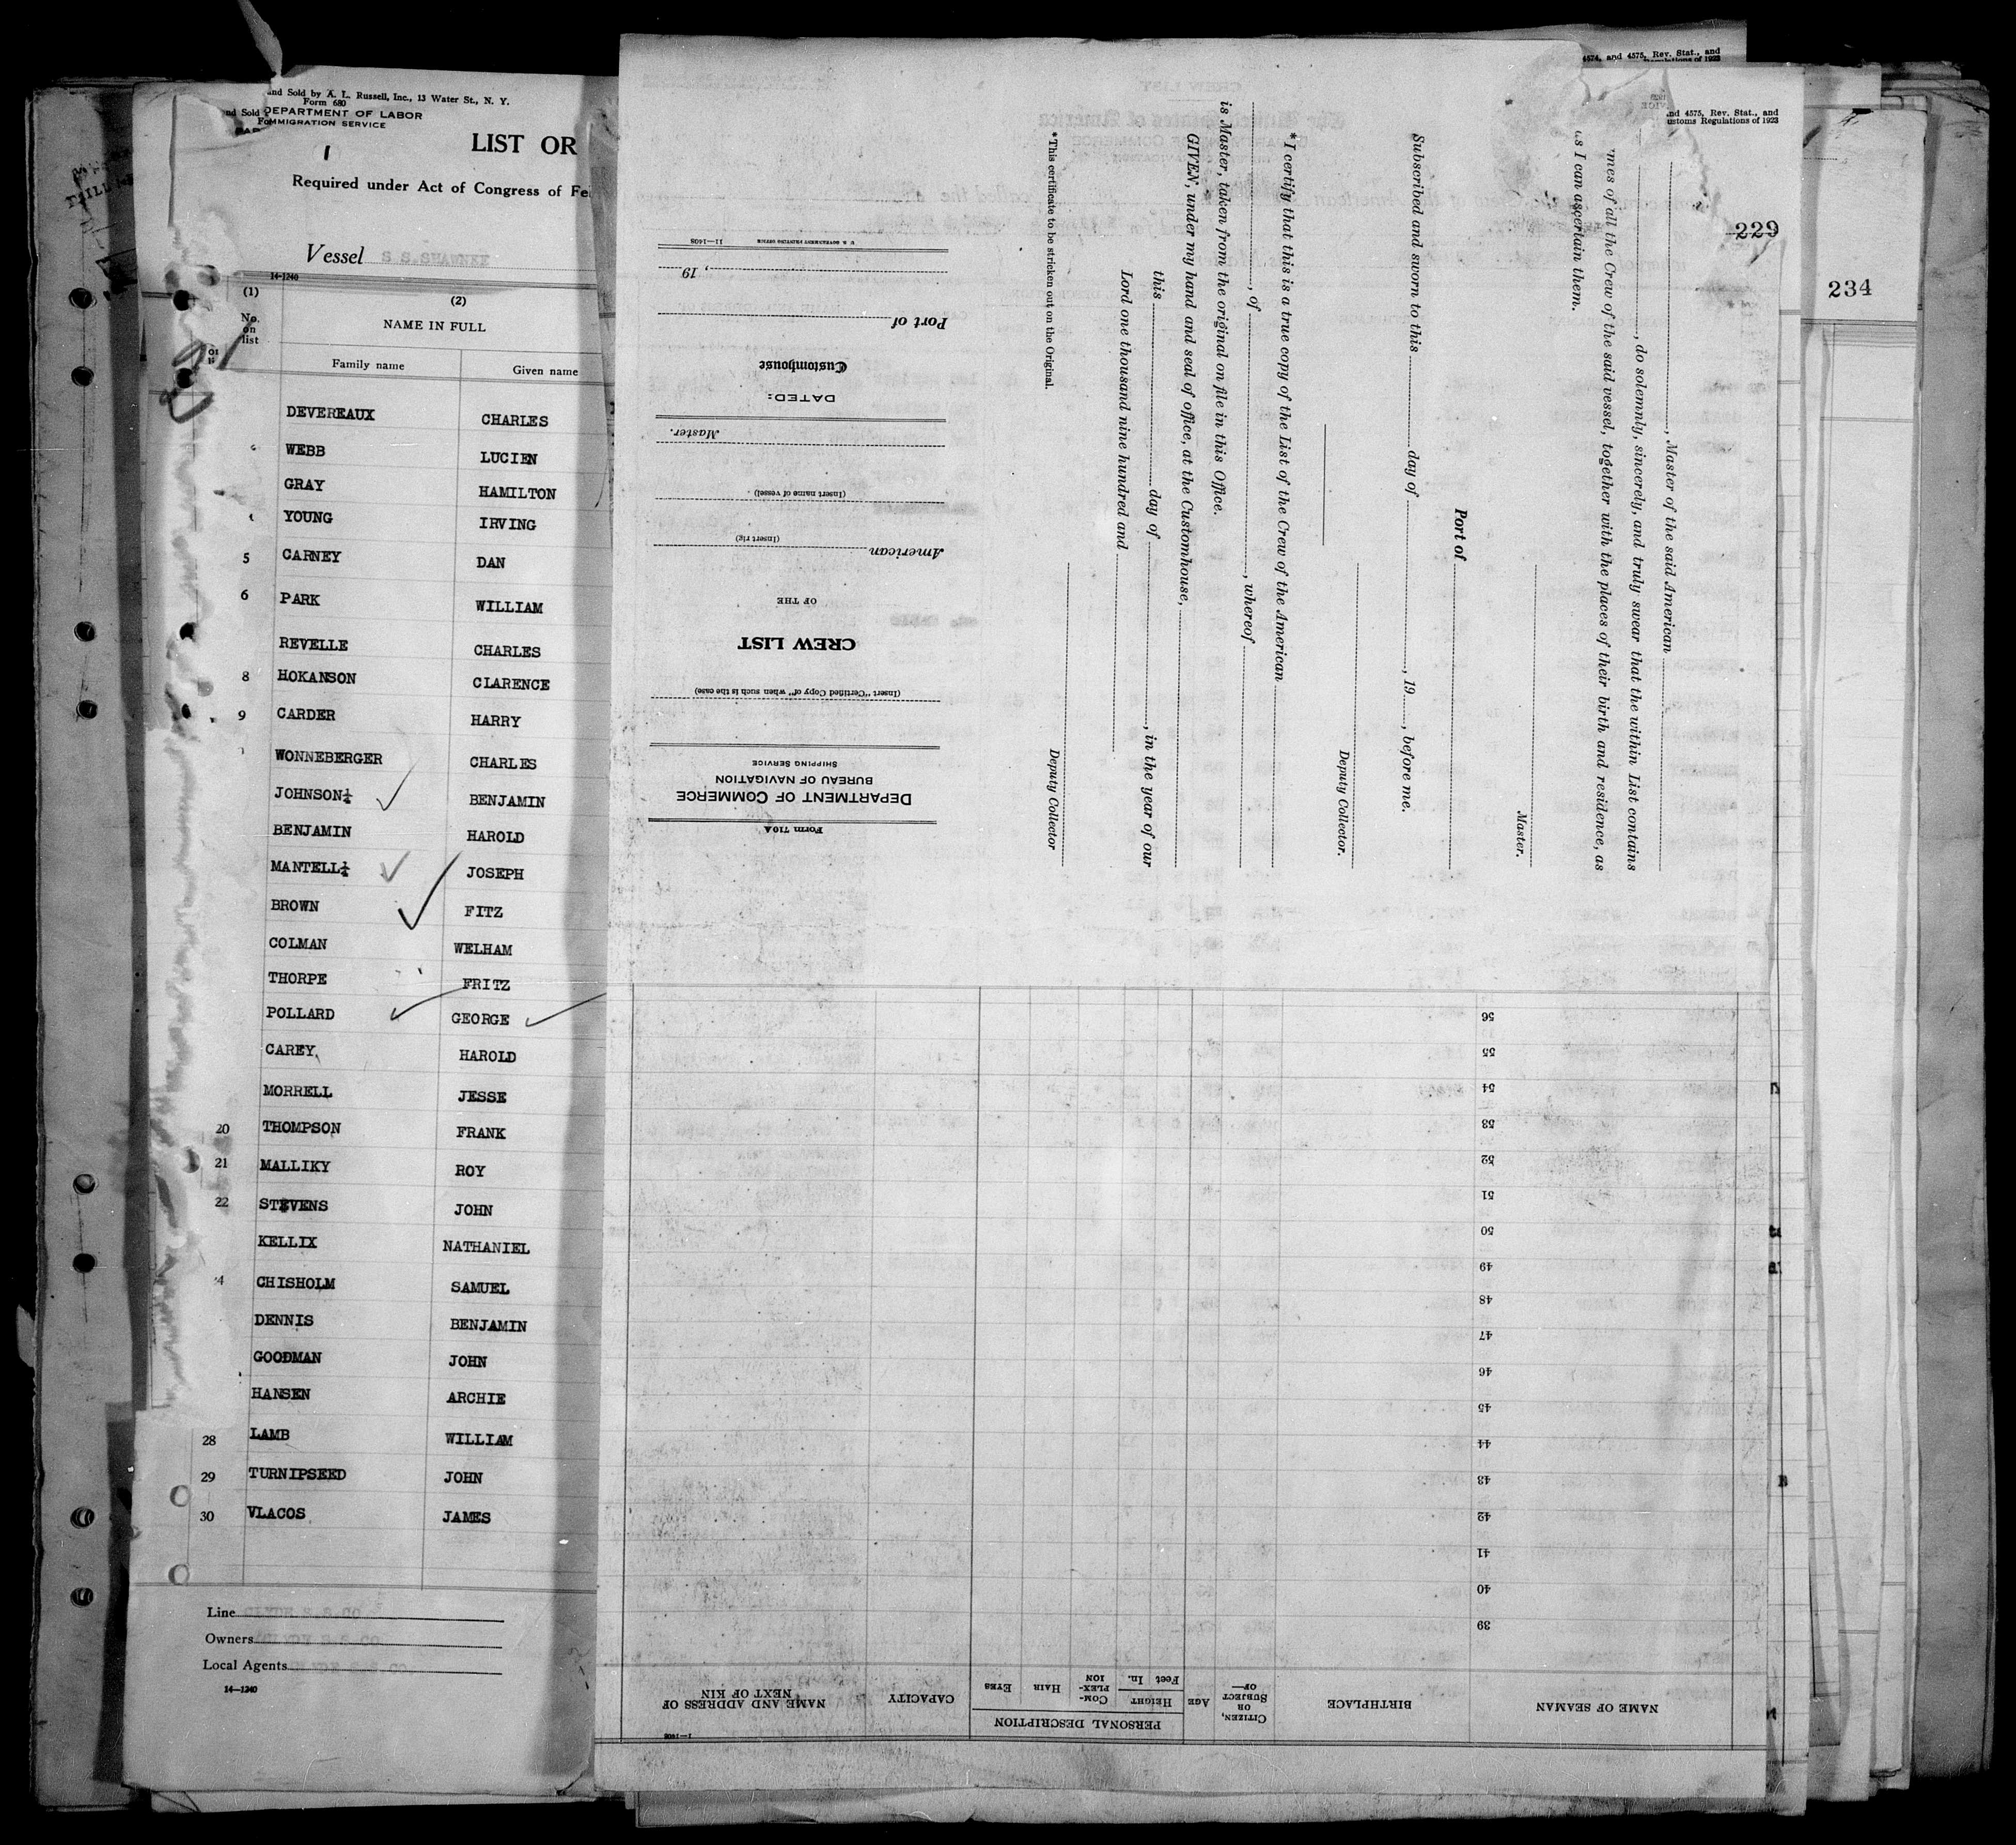 and Sold by A. L. Russell, Inc., 13 Water St., N. Y.
Form 680
nd Sold DEPARTMENT OF LABOR
IMMIGRATION SERVICE
1
LIST OR
Required under Act of Congress of Fe
Vessel S S.SHAWNEE
14-1240
(1) (2)
No. on list
NAME IN FULL
Family name Given name
DEVEREAUX CHARLES
WEBB LUCIEN
GRAY HAMILTON
YOUNG IRVING
5 CARNEY DAN
6 PARK WILLIAM
REVELLE CHARLES
8 HOKANSON CLARENCE
9 CARDER HARRY
WONNEBERGER CHARLES
JOHNSON½ BENJAMIN
BENJAMIN HAROLD
MANTELL½ JOSEPH
BROWN FITZ
COLMAN WELHAM
THORPE FRITZ
POLLARD GEORGE
CAREY HAROLD
MORRELL JESSE
20 THOMPSON FRANK
21 MALLIKY ROY
22 STEVENS JOHN
KELLIX NATHANIEL
4 CHISHOLM SAMUEL
DENNIS BENJAMIN
GOODMAN JOHN
HANSEN ARCHIE
28 LAMB WILLIAM
29 TURNIPSEED JOHN
30 VLACOS JAMES
Line CLYDE S S CO
Owners
Local Agents
14—1240
4574, and 4575, Rev. Stat., and
nd 4575, Rev. Stat., and
ustoms Regulations of 1923
229
234
, Master of the said American
, do solemnly, sincerely, and truly swear that the within List contains
mes of all the Crew of the said vessel, together with the places of their birth and residence, as
as I can ascertain them.
Master.
Port of
Subscribed and sworn to this day of , 19 , before me.
Deputy Collector.
* I certify that this is a true copy of the List of the Crew of the American
, of , whereof
is Master, taken from the original on file in this Office.
GIVEN, under my hand and seal of office, at the Customhouse,
this day of , in the year of our
Lord one thousand nine hundred and
Deputy Collector
* This certificate to be stricken out on the Original.
Form 710A
DEPARTMENT OF COMMERCE
BUREAU OF NAVIGATION
SHIPPING SERVICE
(Insert "Certified Copy of" when such is the case)
CREW LIST
OF THE
American
(Insert rig)
(Insert name of vessel)
Master.
DATED:
Customhouse
Port of
, 19
U. S. GOVERNMENT PRINTING OFFICE 11—1408
NAME OF SEAMAN
BIRTHPLACE
CITIZEN, OR SUBJECT OF—
AGE
PERSONAL DESCRIPTION
HEIGHT
Feet In.
COM-PLEX-ION
HAIR
EYES
CAPACITY
NAME AND ADDRESS OF NEXT OF KIN
39
40
41
42
43
44
45
46
47
48
49
50
51
52
53
54
55
56